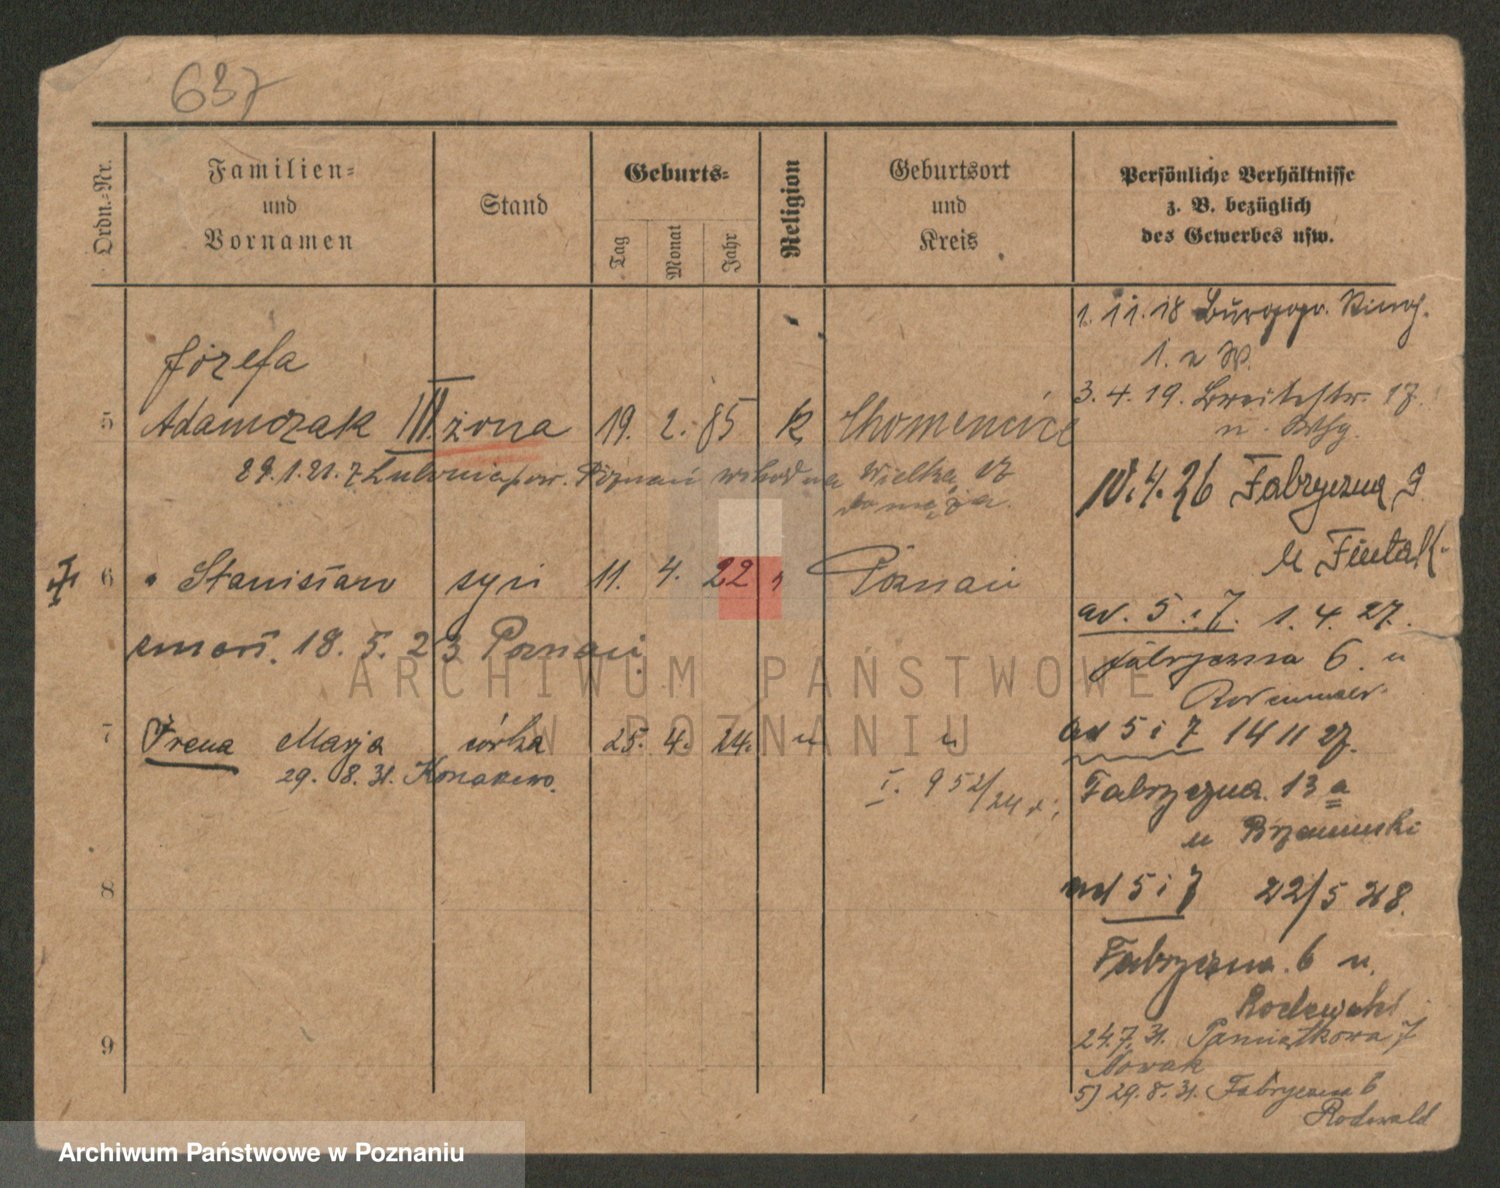 637
Ordn.=Nr.
Familien=
und
Vornamen
Stand
Geburts=
Tag
Monat
Jahr
Religion
Geburtsort
und
Kreis
Persönliche Verhältnisse
z. B. bezüglich
des Gewerbes usw.
1. 11. 18
3. 4. 19. Breitestr. 17.
Józefa
5 Adamczak III. żona 19. 2. 85 k Chomencice
29. 1. 21. z Lubonia pow. Poznań Wielka 17
do męża.
10. 4. 26 Fabryczna 9
6 Stanisław syn 11. 4. 22 " Poznań
ad. 5. i 7. 1. 4. 27.
zmarł. 18. 5. 23 Poznań.
Fabryczna 6. u
7 Irena Marja córka 25. 4. 24. " "
ad 5 i 7 14 11 27.
29. 8. 31.
I. 952/24
Fabryczna 13 a
u
8
ad 5 i 7 22/5 28.
Fabryczna. 6 u.
Rodewald
9
24. 7. 31. Pamiątkowa 7
Nowak
5) 29. 8. 31. Fabryczna 6
Rodewald
ARCHIWUM PAŃSTWOWE
W POZNANIU
Archiwum Państwowe w Poznaniu